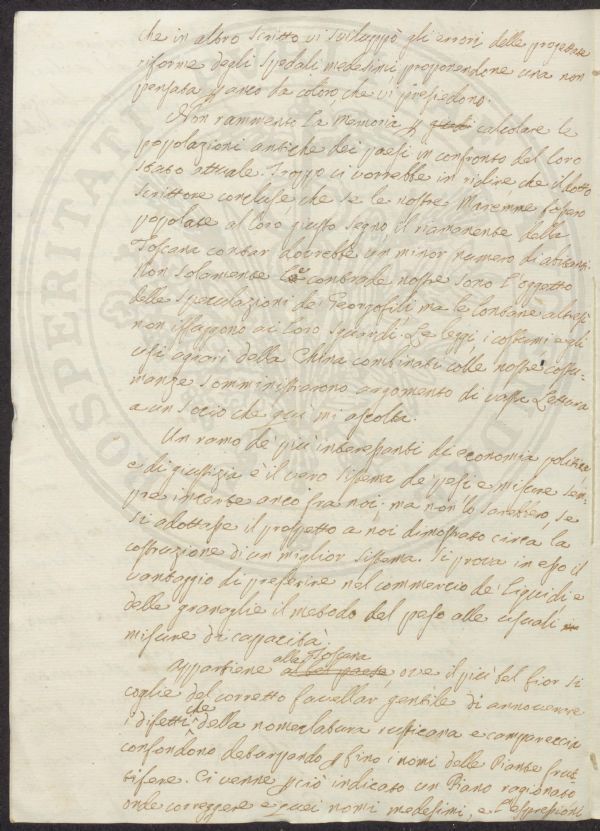 che in altro scritto vi sviluppò gli errori delle progettate
riforme degli spedali medesimi proponendone una non
pensata p anco da coloro, che vi presiedono.
Non rammento la Memoria p calcolare le
popolazioni antiche dei paesi in confronto del loro
stato attuale. Troppo ci vorrebbe in ridire che il dotto
scrittore concluse che se le nostre Maremme fosser
popolate al loro giusto segno il rimanente della
Toscana contar dovrebbe un minor numero di abitanti.
Non solamente le contrade nostre sono l'oggetto
delle speculazioni de Georgofili ma le lontane altresì
non isfuggono ai loro sguardi. Le leggi i costumi e gli
usi agrari della China combinati colle nostre costu-
manze somministrarono argomento di vasta Lettura
a un socio che qui mi ascolta.
Un ramo de più interessanti di economia politica
e di giustizia è il vero sistema de pesi e misure sem-
pre incerte anco fra noi; ma non lo sarebbero, se
si adottasse il progetto a noi dimostrato circa la
costruzione di un miglior sistema. Si prova in esso il
vantaggio di preferire nel commercio de' Liquidi e
delle granaglie il metodo del peso alle usuali
misure di capacità.
Appartiene alla Toscana a tal paese, ove il più bel fior si
coglie del corretto favellar gentile di annoverare
i difetti che della nomenclatura rusticana e campareccia
confondono deturpando p fino i nomi delle Piante frut
tifere. Ci venne p ciò indicato un Piano ragionato
onde correggere e quei nomi medesimi, e l'espressioni